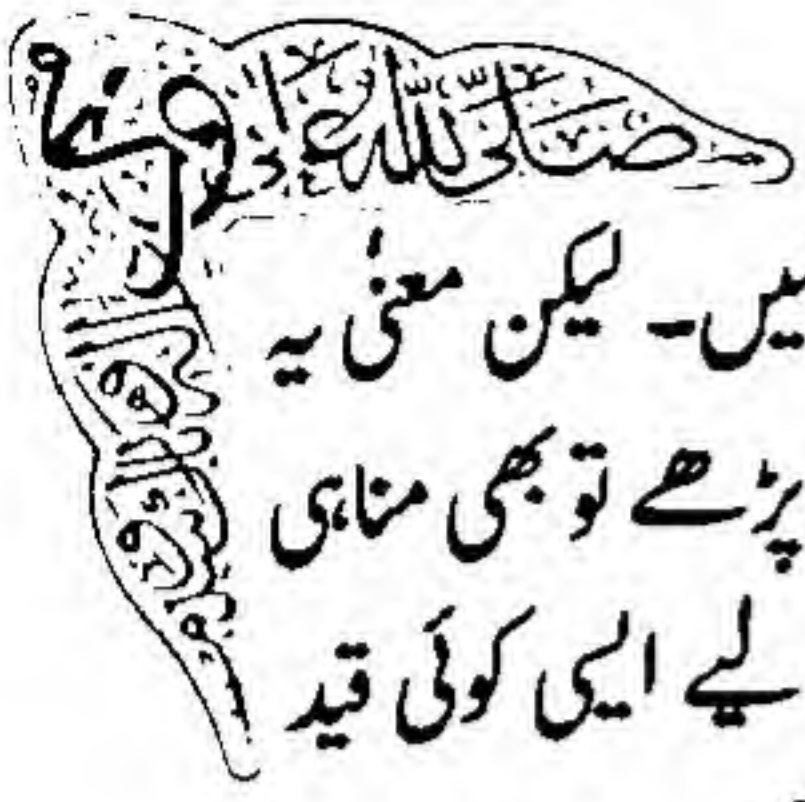 صلی اللہ علیہ
ہیں۔ لیکن معنٰی یہ
پڑھے تو بھی مناہی
لیے ایسی کوئی قید